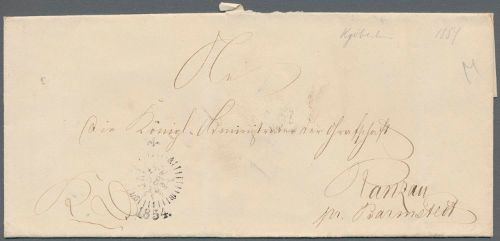 1854
An
die Königl. Administration der Grafschaft
Ranzau
pr. Barmstedt
K. D.
1854.